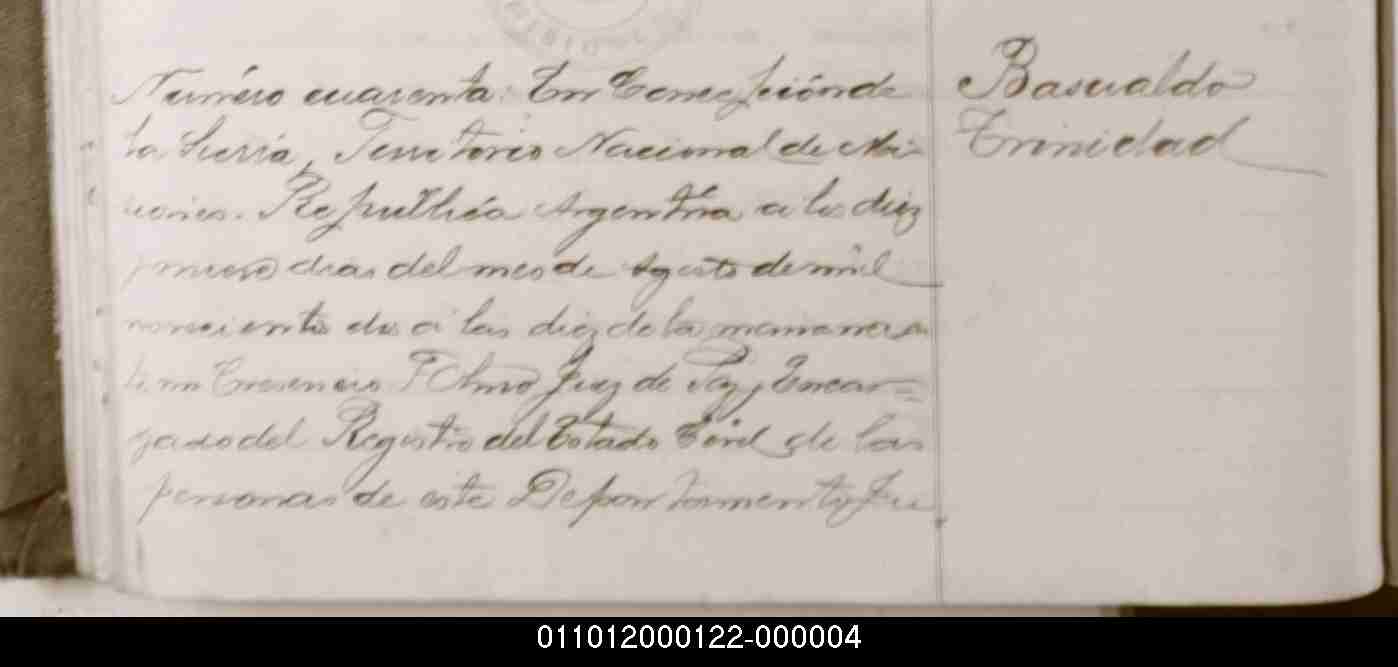 Basualdo
Trinidad
Número cuarenta: En Concepción de
la Sierra, Territorio Nacional de Mi
siones. República Argentina a los diez
y nueve dias del mes de Agosto de mil
novecientos dos a las diez de la manana an
te mi Cresencio Olmo Juez de Paz y Encar=
gado del Registro del Estado Civil de las
personas de este Departamento, fu
011012000122-000004